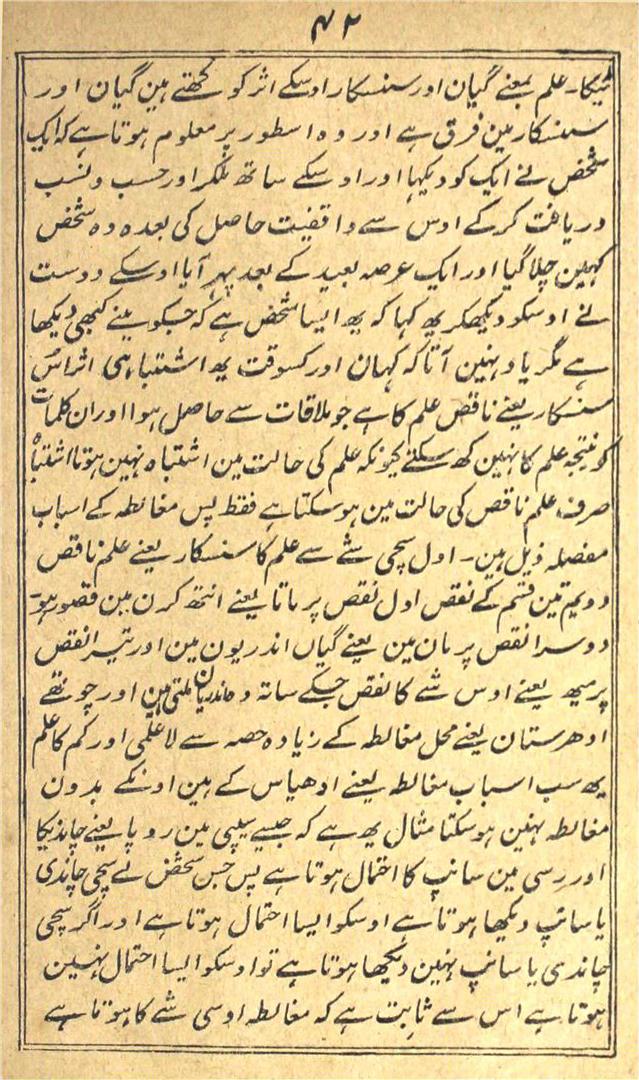 ۴۲
ٹیکا۔ علم بمعنے گیان اور سنسکار اوسکے اثر کو کہتے ہین گیان اور
سنسکار مین فرق ہے اور وہ اسطور پر معلوم ہوتا ہے کہ ایک
شخص نے ایک کو دیکہا اور اوسکے ساتھ ملکر اور حسب و نسب
دریافت کر کے اوس سے واقفیت حاصل کی بعدہ وہ شخص
کہین چلا گیا اور ایک عرصہ بعید کے بعد پہر آیا اوسکے دوست
نے اوسکو دیکھکر یھ کہا کہ یھ ایسا شخص ہے کہ جسکو مینے کبھی دیکھا
ہے مگر یاد نہین آتا کہ کہان اور کسوقت یھ اشتباہ ہی اثر اس
سنسکار یعنے ناقص علم کا ہے جو ملاقات سے حاصل ہوا اور ان کلمات
کو نتیجہ علم کا نہین کھ سکتے کیونکہ علم کی حالت مین اشتباہ نہین ہوتا اشتباہ
صرف علم ناقص کی حالت مین ہو سکتا ہے فقط پس مغالطہ کے اسباب
مفصلہ ذیل ہین۔ اول سچی شے سے علم کا سنسکار یعنے علم ناقص
دویم تین قسم کے نقص اول نقص پرماتا یعنے انتھ کرن مین قصور ہو۔
دوسرا نقص پرمان مین یعنے گیان اندریون مین اور تیسرا نقص
پرمیھ یعنے اوس شے کا نقص جسکے ساتہ وہ اندریان ملتی ہین اور چوتھے
ادھرستان یعنے محل مغالطہ کے زیادہ حصہ سے لاعلمی اور کم کا علم
یھ سب اسباب مغالطہ یعنے ادھیاس کے ہین اونکے بدون
مغالطہ نہین ہو سکتا مثال یھ ہے کہ جیسے سیپی مین روپا یعنے چاندیکا
اور رسی مین سانپ کا احتمال ہوتا ہے پس جس شخص نے سچی چاندی
یا سانپ دیکھا ہوتا ہے اوسکو ایسا احتمال ہوتا ہے اور اگر سچی
چاندی یا سانپ نہین دیکھا ہوتا ہے تو اوسکو ایسا احتمال نہین
ہوتا ہے اس سے ثابت ہے کہ مغالطہ اوسی شے کا ہوتا ہے